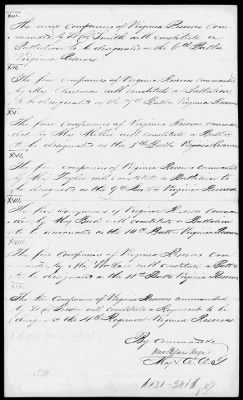 XIII.
The nine Companies of Virginia Reserves com-
manded by Smith will constitute a
Battalion to be designated as the 6th Battn
Virginia Reserves
XIV.
The five Companies of Virginia Reserves commanded
by Maj will constitute a Battalion
to be designated as the 7th Battn Virginia Reserves
XV.
The four Companies of Virginia Reserves comman-
ded by Maj Miller will constitute a Battn
to be designated as the 8th Battn Virginia Reserves
XVI.
The five companies of Virginia Reserves commanded
by Maj will constitute a Battalion to
be designated as the 9th Battn Virginia Reserves
XVII.
The five Companies of Virginia Reserves comman-
ded by Maj will constitute a Battalion
to be designated as the 10th Battn Virginia Reserves
XVIII.
The five Companies of Virginia Reserves com-
manded by Maj will constitute a Battn
to be designated as the 11th Battn Virginia Reserves
The ten Companies of Virginia Reserves commanded
by will constitute a Regiment to be
designated as the 4th Regiment Virginia Reserves
By command
Maj & A. A. G